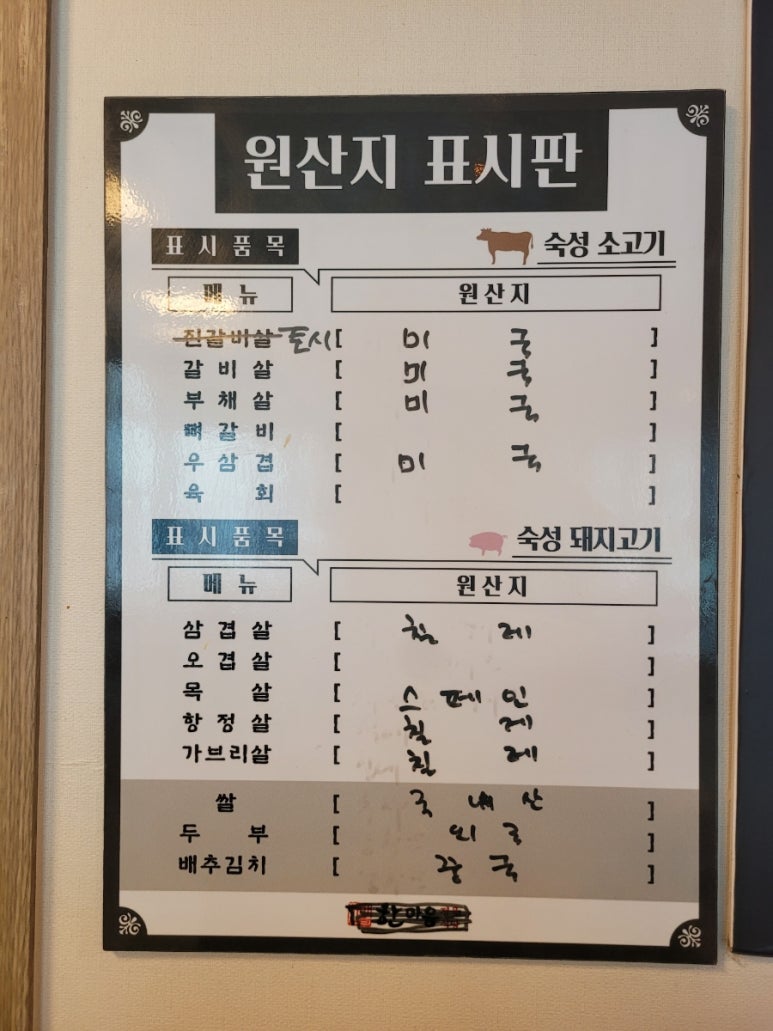 원산지 표시판
표시품목 숙성 소고기
메뉴 원산지
진갈비살 토시 [ 미국 ]
갈비살 [ 미국 ]
부채살 [ 미국 ]
떡갈비 [ ]
우삼겹 [ 미국 ]
육회 [ ]
표시품목 숙성 돼지고기
메뉴 원산지
삼겹살 [ 칠레 ]
오겹살 [ ]
목살 [ 스페인 ]
항정살 [ 칠레 ]
가브리살 [ 칠레 ]
쌀 [ 국내산 ]
두부 [ 외국 ]
배추김치 [ 중국 ]